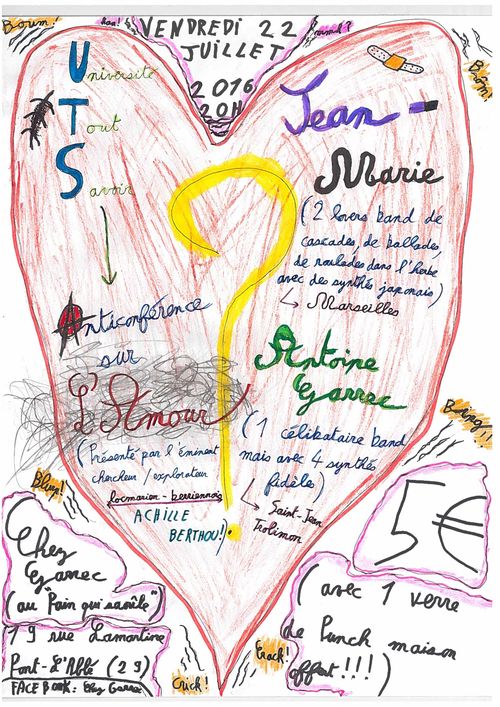 Boum!
Bam!
VENDREDI 22
JUILLET
2016
20H
Boom!
Université
Tout
Savoir
Jean-
Marie
(2 lovers band de
cascades, de ballades,
de roulades dans l'herbe
avec des synthés japonais)
↳ Marseilles
Anticonférence
sur
L'Amour
(Présenté par l'éminent
chercheur / explorateur
locmarien-berriennois
ACHILLE
BERTHOU!)
?
Antoine
Garrec
(1 célibataire band
mais avec 4 synthés
fidèles)
↳ Saint-Jean
Trolimon
Bling!
Blup!
5€
(avec 1 verre
de Punch maison
offert!!!)
Chez
Garrec
(au "Pain qui sanile")
19 rue Lamartine
Pont-L'Abbé (29)
FACEBOOK: Chez Garrec
Crich!
Crach!